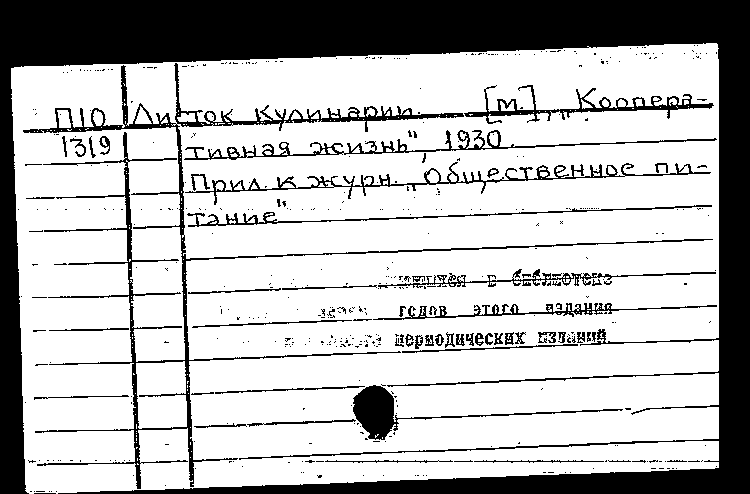 П10 Листок Кулинарии. [М.] „Коопера-
1319 тивная жизнь", 1930.
Прил. к журн. „Общественное пи-
тание"
имеющихся в библиотеке
годов этого издания
периодических изданий